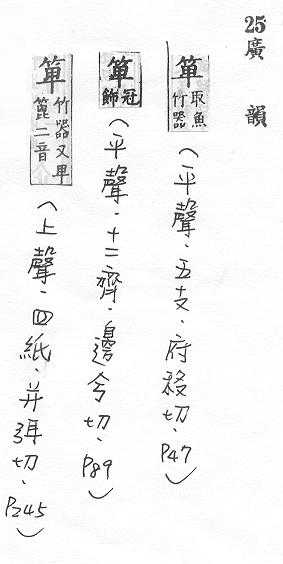 25廣韻
箄取魚竹器(平聲.五支.府移切.P47)
箄冠飾(平聲.十二齊.邊兮切.P89)
箄竹器又卑篦二音(上聲.四紙.并弭切.P245)